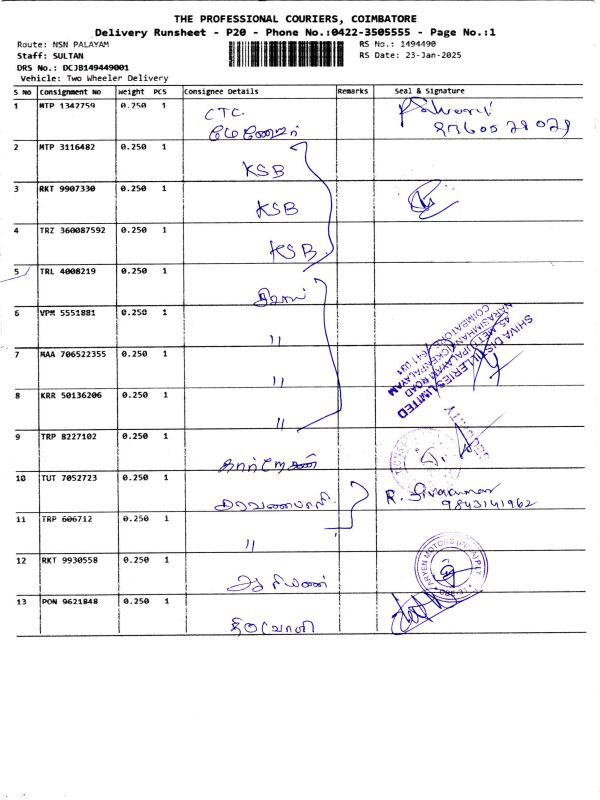 THE PROFESSIONAL COURIERS, COIMBATORE
Delivery Runsheet - P20 - Phone No.:0422-3505555 - Page No.:1
Route: NSN PALAYAM RS No.: 1494490
Staff: SULTAN RS Date: 23-Jan-2025
DRS No.: DCJB149449001
Vehicle: Two Wheeler Delivery
S No Consignment No Weight PCS Consignee Details Remarks Seal & Signature
1 MTP 1342759 0.250 1 CTC.
2 MTP 3116482 0.250 1 KSB
3 RKT 9907330 0.250 1 KSB
4 TRZ 360087592 0.250 1 KSB
5 TRL 4008219 0.250 1
6 VPM 5551881 0.250 1 "
7 MAA 706522355 0.250 1 "
SHIVA DISTILLERIES LIMITED
45, METTUPALAYAM ROAD
NARASIMHANAICKENPALAYAM
COIMBATORE 641 031
8 KRR 50136206 0.250 1 "
9 TRP 8227102 0.250 1
10 TUT 7052723 0.250 1 சரவணபாரி R. Sivakumar
9843141962
11 TRP 606712 0.250 1 "
12 RKT 9930558 0.250 1 ஆரியன்
ARYEN MOTORS
13 PON 9621848 0.250 1 திருவாளி